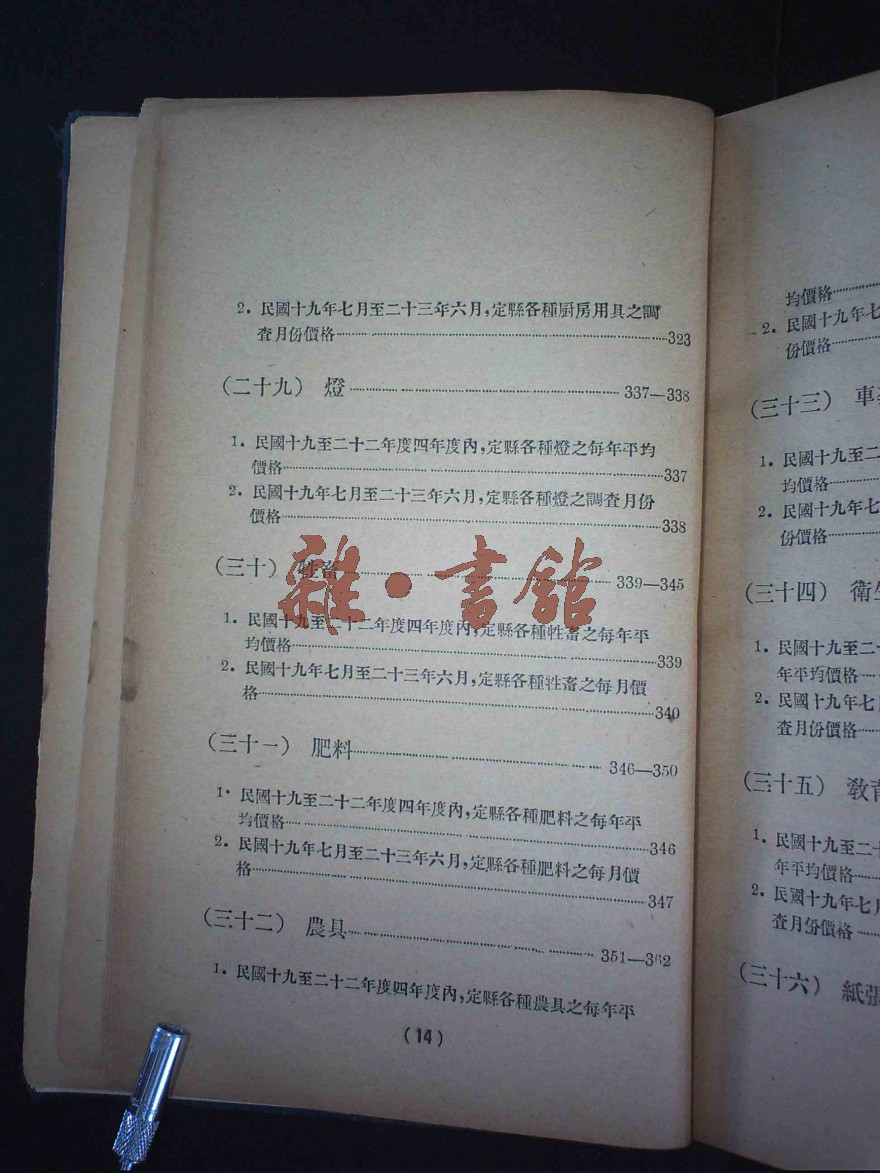 2. 民國十九年七月至二十三年六月,定縣各種厨房用具之調
查月份價格……323
(二十九) 燈……337—338
1. 民國十九至二十二年度四年度內,定縣各種燈之每年平均
價格……337
2. 民國十九年七月至二十三年六月,定縣各種燈之調查月份
價格……338
(三十) 牲畜……339—345
1. 民國十九至二十二年度四年度內,定縣各種牲畜之每年平
均價格……339
2. 民國十九年七月至二十三年六月,定縣各種牲畜之每月價
格……340
(三十一) 肥料……346—350
1. 民國十九至二十二年度四年度內,定縣各種肥料之每年平
均價格……346
2. 民國十九年七月至二十三年六月,定縣各種肥料之每月價
格……347
(三十二) 農具……351—362
1. 民國十九至二十二年度四年度內,定縣各種農具之每年平
(14)
雜·書館
均價格……
2. 民國十九年七
份價格……
(三十三) 車
1. 民國十九至二
均價格……
2. 民國十九年七
份價格……
(三十四) 衛生
1. 民國十九至二十
年平均價格……
2. 民國十九年七月
查月份價格……
(三十五) 教育
1. 民國十九至二十
年平均價格……
2. 民國十九年七月
查月份價格……
(三十六) 紙張